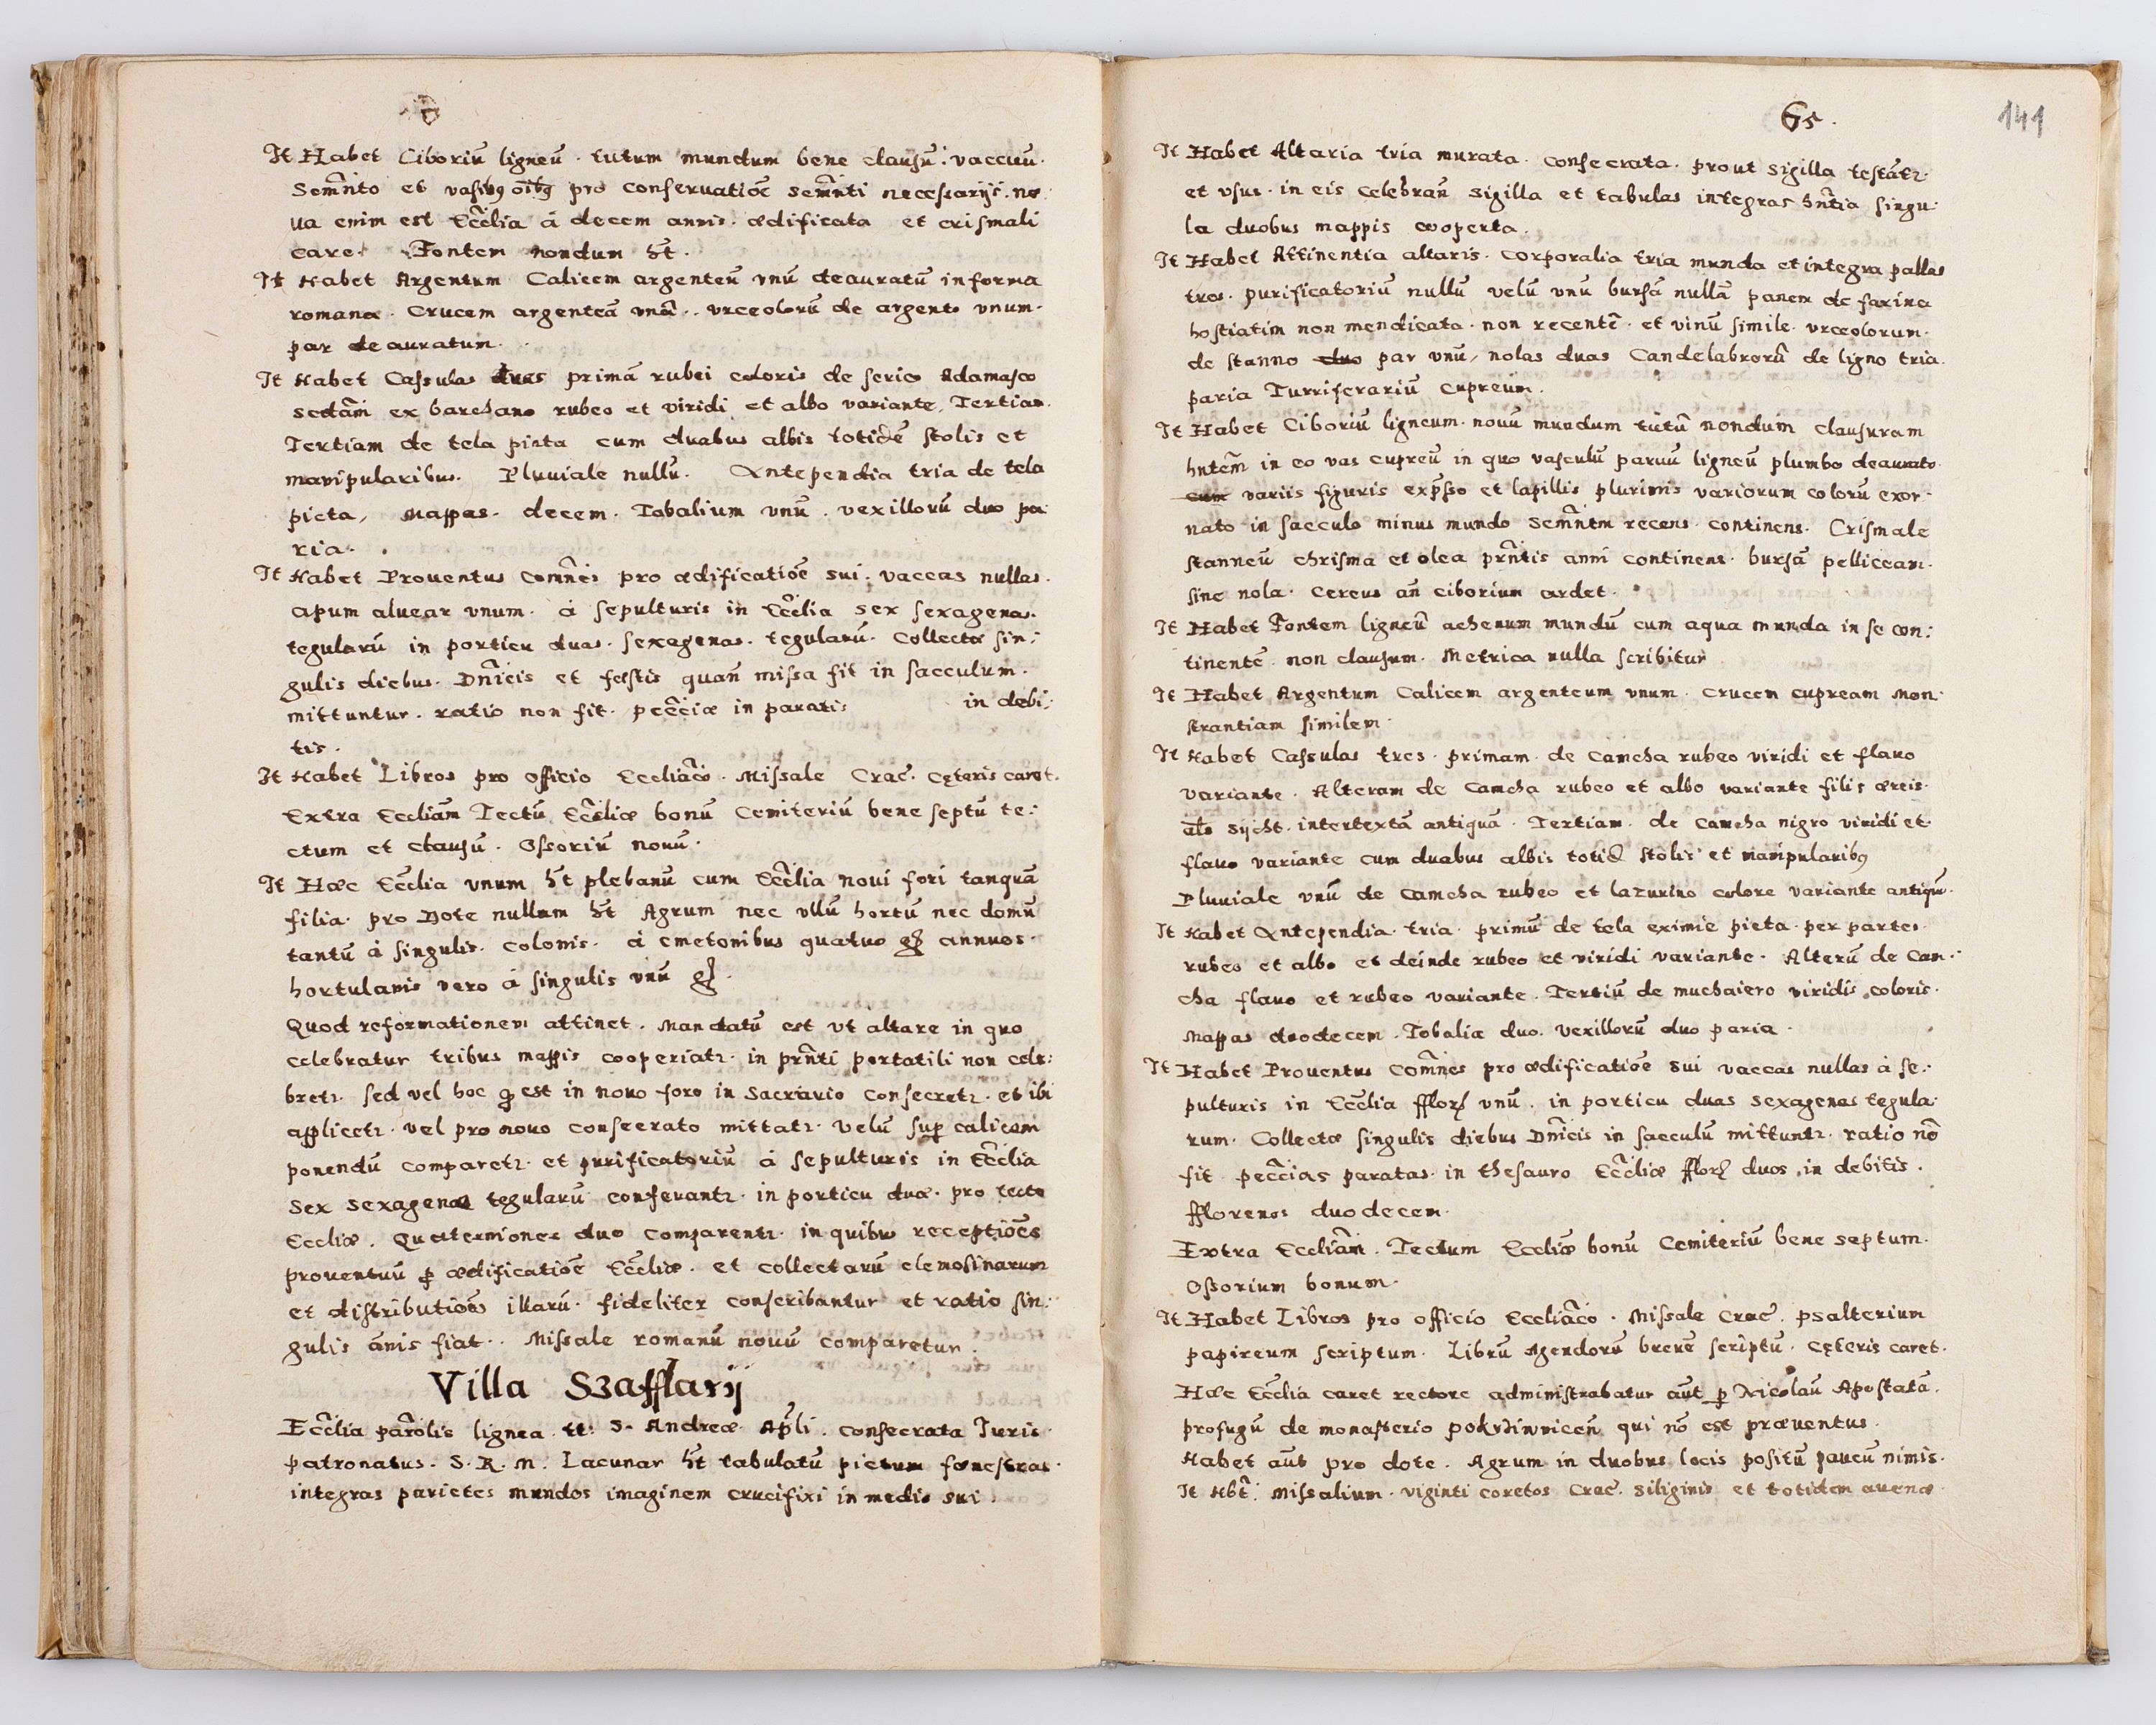 It Habet Ciboriũ ligneũ. tutum mundum bene clausũ: vaccuũ.
Semñto et vasibꝫ õibꝫ pro conservatiõe semñti necessarijs. no
va enim est Ecclĩa à decem annis. ædificata et crismali
caret Fontem nondum ht̃.
It Habet Argentum Calicem argenteũ unũ deauratũ in forma
romana. Crucem argenteã vnã.. vrceolorũ de argento vnum.
par deauratum.
It Habet Cassulas duas primã rubei coloris de serico Adamasco
Secdãm ex barchano rubeo et viridi et albo variante, Tertiam
Tertiam de tela picta cum duabus albis totidẽ stolis et
manipularibus. Pluuiale nullũ. Antependia tria de tela
picta, Mappas. decem. Tobalium vnũ. vexillorũ duo pa:
ria.
It Habet Prouentus comñes pro ædificatiõe sui. vaccas nullas.
apum aluear vnum. à sepulturis in Ecclĩa sex sexagenas.
tegularũ in porticu duas. sexagenas. tegularũ. Collectæ sin:
gulis diebus. Dñicis et fæstis quañ missa fit in sacculum.
mittuntur. ratio non fit. pecc̃iæ in paratis in debi:
tis.
It Habet Libros pro officio Eccliãco. Missale Crac̃. Cęteris caret.
Extra Eccliãm Tectũ Ecclĩæ bonũ Cemiteriũ bene septũ te:
ctum et clausũ. Ossoriũ nouũ.
It Hæc Ecclĩa vnum ht̃ plebanũ cum Ecclĩa noui fori tanquã
filia. pro Dote nullum ht̃ Agrum nec vllũ hortũ nec domũ
tantũ à singulis. colonis. à cmetonibus quatuo gꝭ annuos.
hortulanis vero à singulis vnũ gꝭ.
Quod reformationem attinet. Mandatũ est vt altare in quo
celebratur tribus mappis cooperiatꝛ. in prñti portatili non cele:
bretꝛ. sed vel hoc ꝙ est in nouo foro in Sacrario consecretꝛ. et ibi
applicetꝛ. vel pro nouo consecrato mittatꝛ. Velũ suꝑ calicem
ponendũ comparetꝛ. et purificatoriũ à sepulturis in Ecclĩa
sex sexagenæ tegularũ conferantꝛ. in porticu duæ. pro tecto
Eccliæ. Quaterniones duo comparentꝛ. in quibus receptiões
prouentuũ ꝓ ædificatiõe Ecclĩæ. et collectarũ elemosinarum
et distributiões illarũ. fideliter conscribantur et ratio sin:
gulis ãnis fiat.. Missale romanũ nouũ comparetur.
Villa Szafflarÿ
Ecclĩa parõlis lignea tt: S. Andreæ Apl̃i. consecrata Iuris.
patronatus. S. R. M. Lacunar ht̃ tabulatũ pictum fœnestras.
integras parietes mundos imaginem crucifixi in medio sui.
65. 141
It Habet Altaria tria murata. consecrata. prout sigilla testãtꝛ.
et vsus. in eis celebrañ sigilla et tabulas integras hñtia singu:
la duobus mappis cooperta.
It Habet Attinentia altaris. Corporalia tria munda et integra pallas
tres. purificatoriũ nullũ velũ vnũ bursã nullã panem de farina
hostiatim non mendicata. non recentẽ. et vinũ simile. vrceolorum.
de stanno duo par vnũ, nolas duas Candelabrorũ de ligno tria.
paria Turriferariũ cupreum.
It Habet Ciboriũ ligneum. nouũ mundum tutũ nondum clausuram
hñtem in eo vas cupreũ in quo vasculũ paruũ ligneũ plumbo deaurato.
cum variis figuris exp̃sso et lapillis plurimis variorum colorũ exor:
nato in sacculo minus mundo Semñtm recens. continens. Crismale
stanneũ chrisma et olea prñtis anni continens. bursã pelliceam.
sine nola. Cereus añ ciborium ardet.
It Habet Fontem ligneũ acherum mundũ cum aqua munda in se con:
tinentẽ non clausum. Metrica nulla scribitur
It Habet Argentum Calicem argenteum vnum. crucem cupream Mon:
strantiam similem.
It Habet Cassulas tres. primam. de Camcha rubeo viridi et flauo
variante. Alteram de Camcha rubeo et albo variante filis æreis.
als Sÿcht. intertextã antiquã. Tertiam. de Camcha nigro viridi et
flauo variante cum duabus albis totid stolis et manipularibꝫ
Pluuiale vnũ de Camcha rubeo et lazurino colore variante antiqũ.
It Habet Antependia. tria. primũ de tela eximie picta. per partes.
rubeo et albo et deinde rubeo et viridi variante. Alterũ de Cam:
cha flauo et rubeo variante. Tertiũ de muchaiero viridis coloris.
Mappas duodecem. Tobaliæ duo. Vexillorũ duo paria.
It Habet Prouentus comñes pro ædificatiõe sui vaccas nullas à se:
pulturis in Ecclĩa fflorꝭ vnũ. in porticu duas sexagenas tegula:
rum. Collectæ singulis diebus Dñicis in sacculũ mittuntꝛ. ratio nõ
fit pecc̃ias paratas. in thesauro Ecclĩæ fflorꝭ duos, in debitis.
fflorenos duodecem.
Extra Eccliãm. Tectum Eccliæ bonũ Cemiteriũ bene septum.
Ossorium bonum.
It Habet Libros pro officio Eccliãco. Missale Crac̃. psalterium
papireum scriptum. Librũ Agendorũ breuẽ scriptũ. Cęteris caret.
Hæc Ecclĩa caret rectore administrabatur aũt ꝑ Nicolaũ Apostatã.
profugũ de monasterio pokrziwniceñ qui nõ est præuentus.
Habet aũt pro dote. Agrum in duobus locis positũ paucũ nimis.
It Hbt̃: Missalium. viginti coretos Crac̃. siliginis et totidem auenæ.